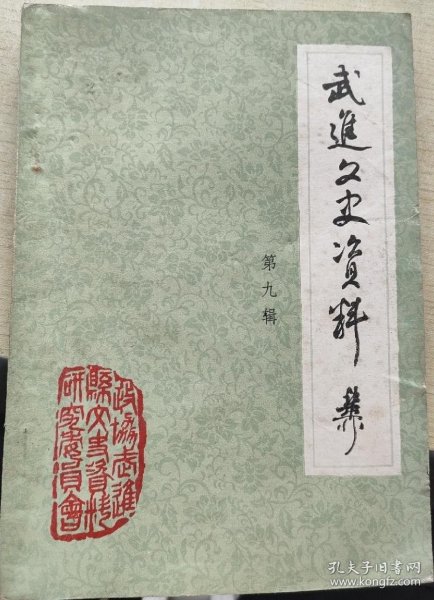 武進文史资料
第九辑
政協武進
縣文史資料
研究委員會
孔夫子旧书网
www.kongfz.com